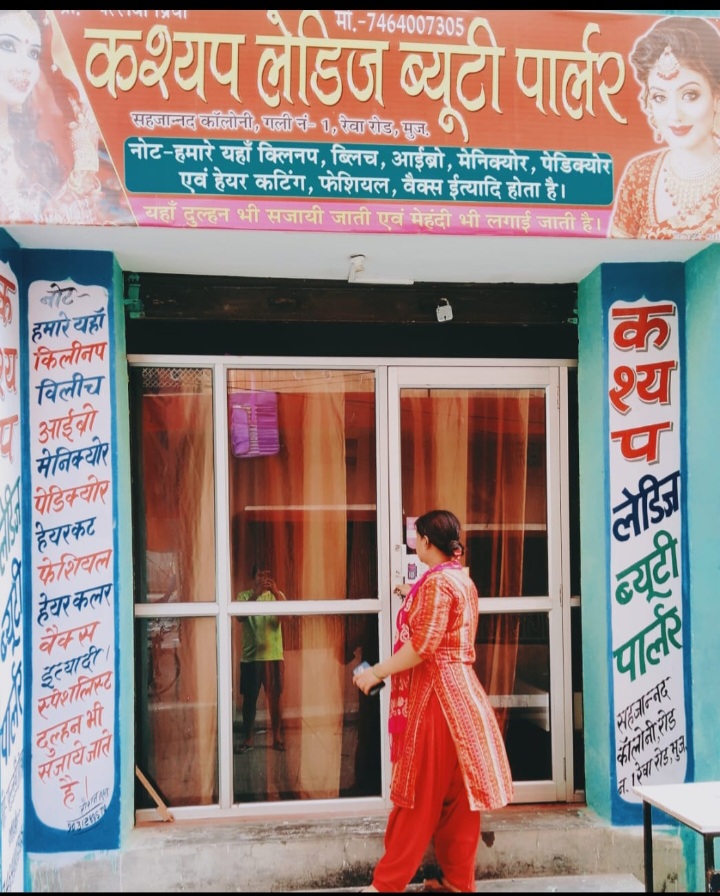 मो.-7464007305
कश्यप लेडिज ब्यूटी पार्लर
सहजानन्द कॉलोनी, गली नं- 1, रेवा रोड, मुज.
नोट-हमारे यहाँ क्लिनप, ब्लिच, आईब्रो, मेनिक्योर, पेडिक्योर
एवं हेयर कटिंग, फेशियल, वैक्स ईत्यादि होता है।
यहाँ दुल्हन भी सजायी जाती एवं मेहंदी भी लगाई जाती है।
नोट-
हमारे यहाँ
किलीनप
विलीच
आईब्रो
मेनिक्योर
पेडिक्योर
हेयरकट
फेशियल
हेयर कलर
वैक्स
इत्यादी।
स्पेशलिस्ट
दुल्हन भी
सजाये जाते
है।
क
श्य
प
लेडिज
ब्यूटी
पार्लर
सहजानन्द
कॉलोनी, रोड
न. 1 रेवा रोड, मुज.